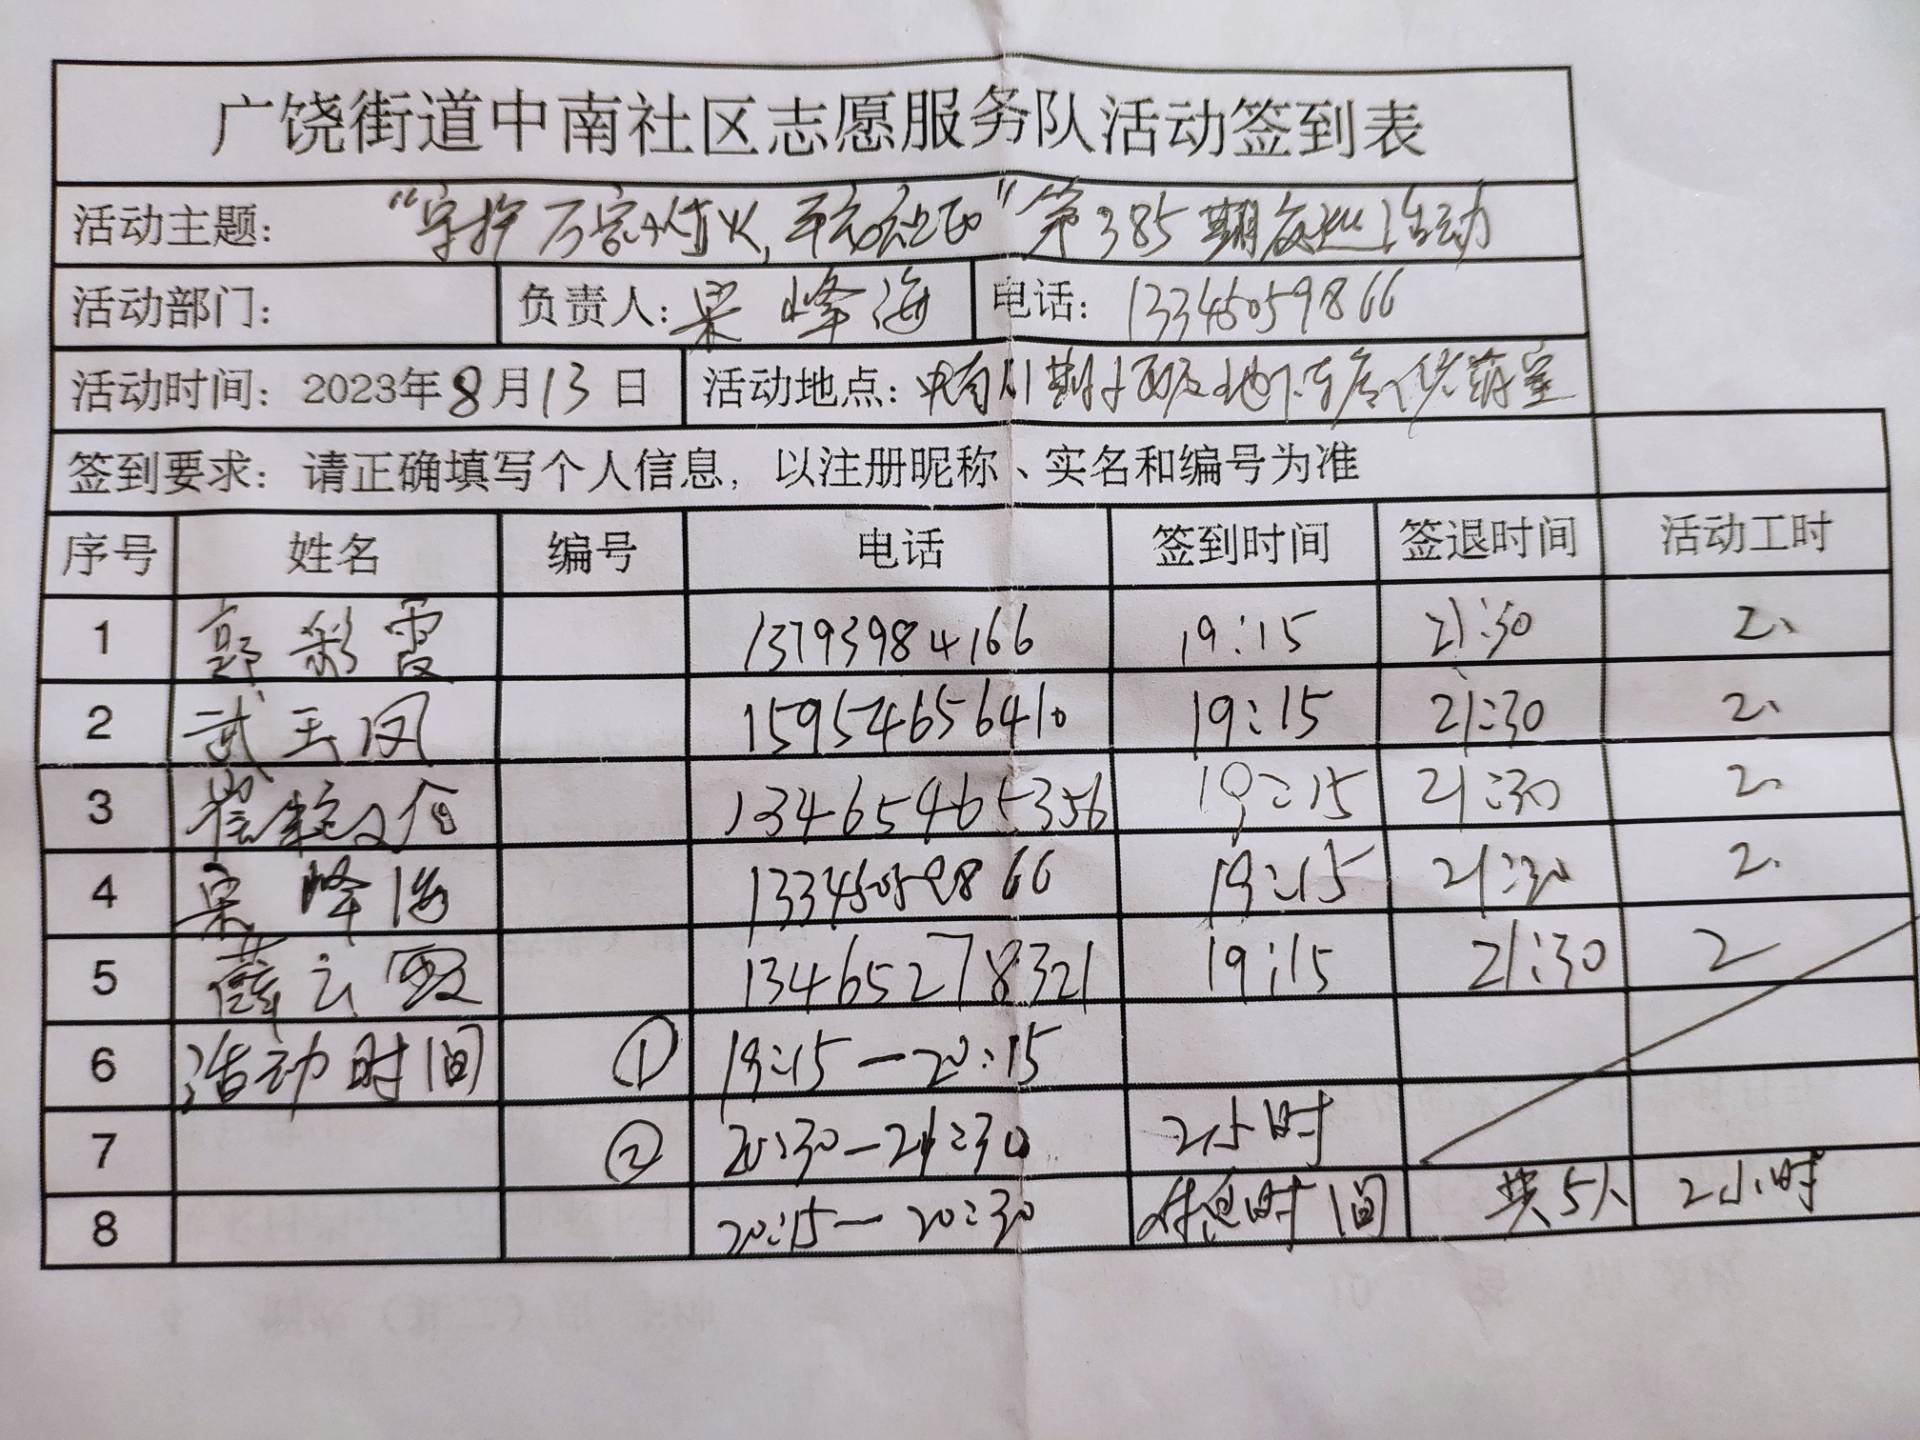 广饶街道中南社区志愿服务队活动签到表
活动主题: “守护万家灯火, 平安社区”第385期夜巡活动
活动部门: 负责人: 宋峰海 电话: 13345059866
活动时间: 2023年8月13日 活动地点: 地下车库
签到要求: 请正确填写个人信息, 以注册昵称、实名和编号为准
序号 姓名 编号 电话 签到时间 签退时间 活动工时
1 郭彩霞 13793984166 19:15 21:30 2.
2 武玉凤 15954656410 19:15 21:30 2.
3 崔 13465465356 19:15 21:30 2.
4 宋峰海 13345059866 19:15 21:30 2.
5 薛云霞 13465278321 19:15 21:30 2
6 活动时间 ① 19:15—20:15
7 ② 20:30—21:30 2小时
8 20:15—20:30 休息时间 共5人 2小时